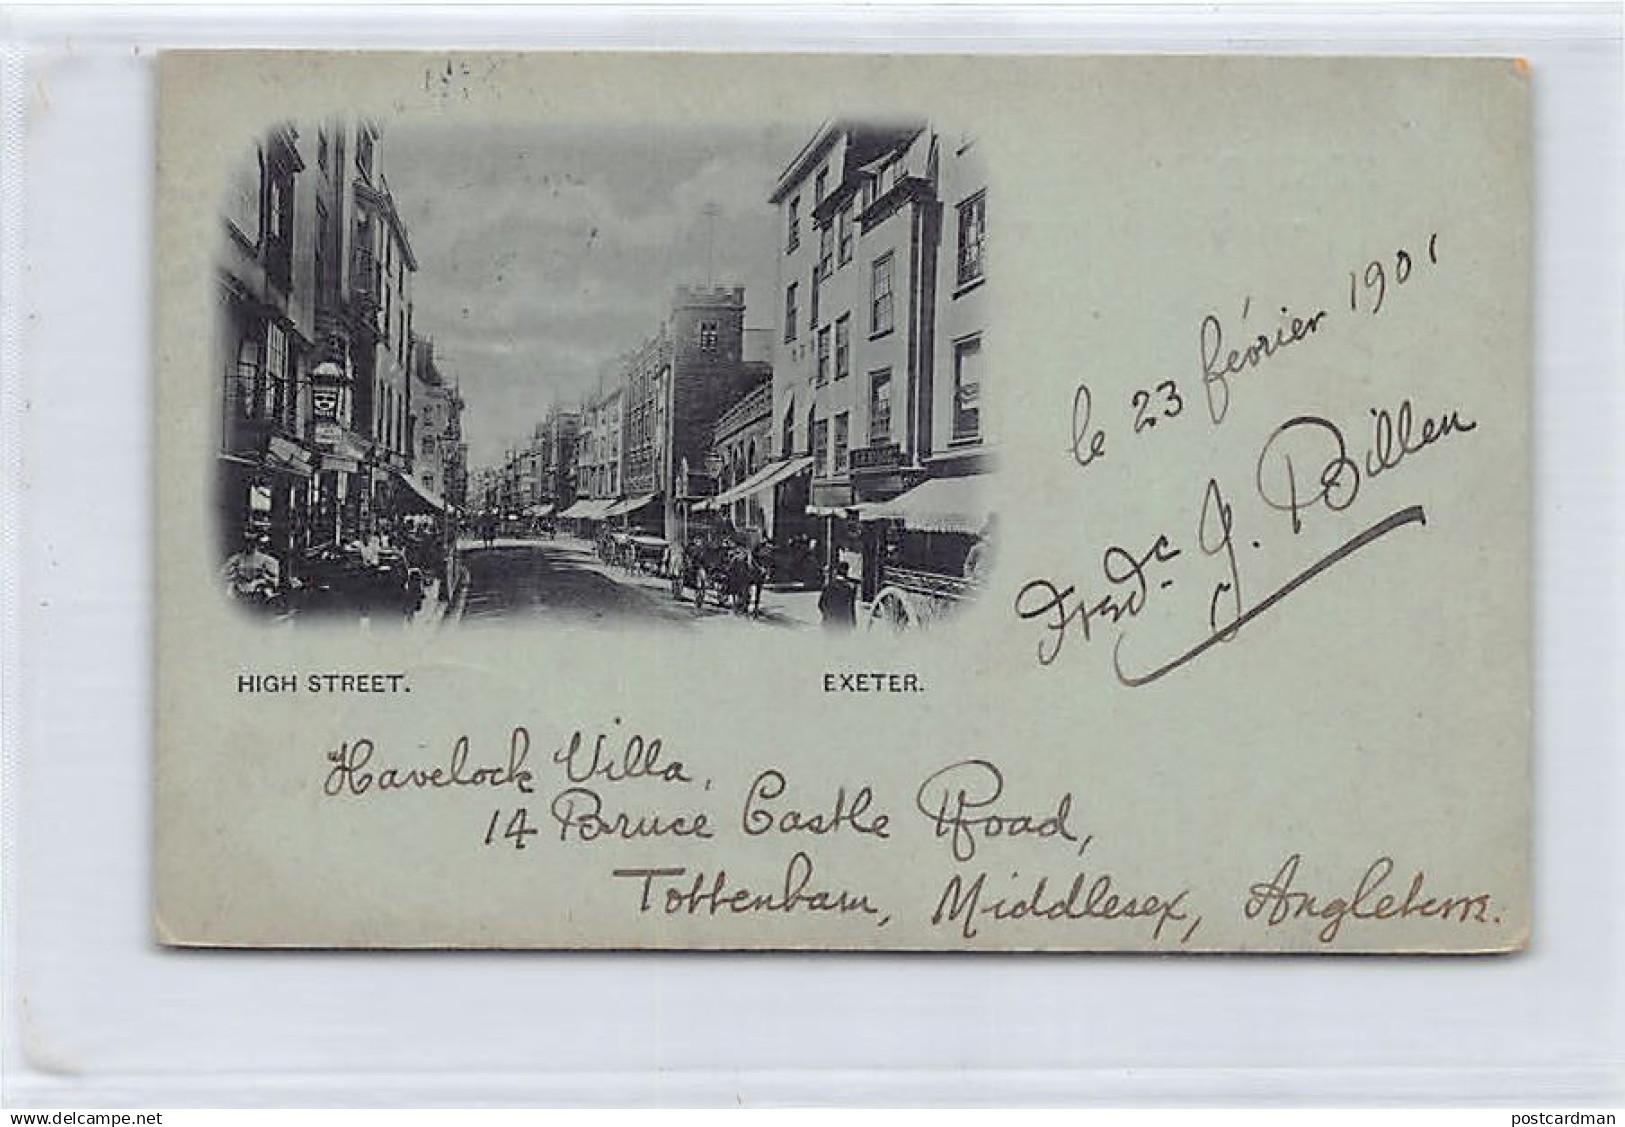 le 23 février 1901
Fredc. J. Billen
HIGH STREET. EXETER.
Havelock Villa,
14 Bruce Castle Road,
Tottenham, Middlesex, Angleterre.
www.delcampe.net
postcardman